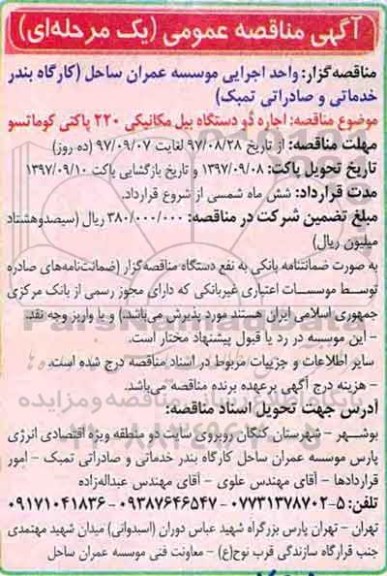 آگهی مناقصه عمومی (یک مرحله‌ای)
مناقصه‌گزار: واحد اجرایی موسسه عمران ساحل (کارگاه بندر
خدماتی و صادراتی تمبک)
موضوع مناقصه: اجاره دو دستگاه بیل مکانیکی ۲۲۰ پاکتی کوماتسو
مهلت مناقصه: از تاریخ ۹۷/۰۸/۲۸ لغایت ۹۷/۰۹/۰۷ (ده روز)
تاریخ تحویل پاکت: ۱۳۹۷/۰۹/۰۸ و تاریخ بازگشایی پاکت ۱۳۹۷/۰۹/۱۰
مدت قرارداد: شش ماه شمسی از شروع قرارداد.
مبلغ تضمین شرکت در مناقصه: ۳۸۰/۰۰۰/۰۰۰ ریال (سیصدوهشتاد
میلیون ریال)
به صورت ضمانتنامه بانکی به نفع دستگاه مناقصه‌گزار (ضمانت‌نامه‌های صادره
توسط موسسات اعتباری غیربانکی که دارای مجوز رسمی از بانک مرکزی
جمهوری اسلامی ایران هستند مورد پذیرش می‌باشد) و یا واریز وجه نقد.
- این موسسه در رد یا قبول پیشنهاد مختار است.
- سایر اطلاعات و جزییات مربوط در اسناد مناقصه درج شده است.
- هزینه درج آگهی برعهده برنده مناقصه می‌باشد.
آدرس جهت تحویل اسناد مناقصه:
بوشهر - شهرستان کنگان روبروی سایت دو منطقه ویژه اقتصادی انرژی
پارس موسسه عمران ساحل کارگاه بندر خدماتی و صادراتی تمبک - امور
قراردادها - آقای مهندس علوی - آقای مهندس عبداله‌زاده
تلفن: ۵-۰۷۷۳۱۳۷۸۷۰۲ - ۰۹۳۸۷۶۴۶۵۴۷ - ۰۹۱۷۱۰۴۱۸۳۶
تهران - تهران پارس بزرگراه شهید عباس دوران (استخوانی) میدان شهید مهتمدی
جنب قرارگاه سازندگی قرب نوح(ع) - معاونت فنی موسسه عمران ساحل